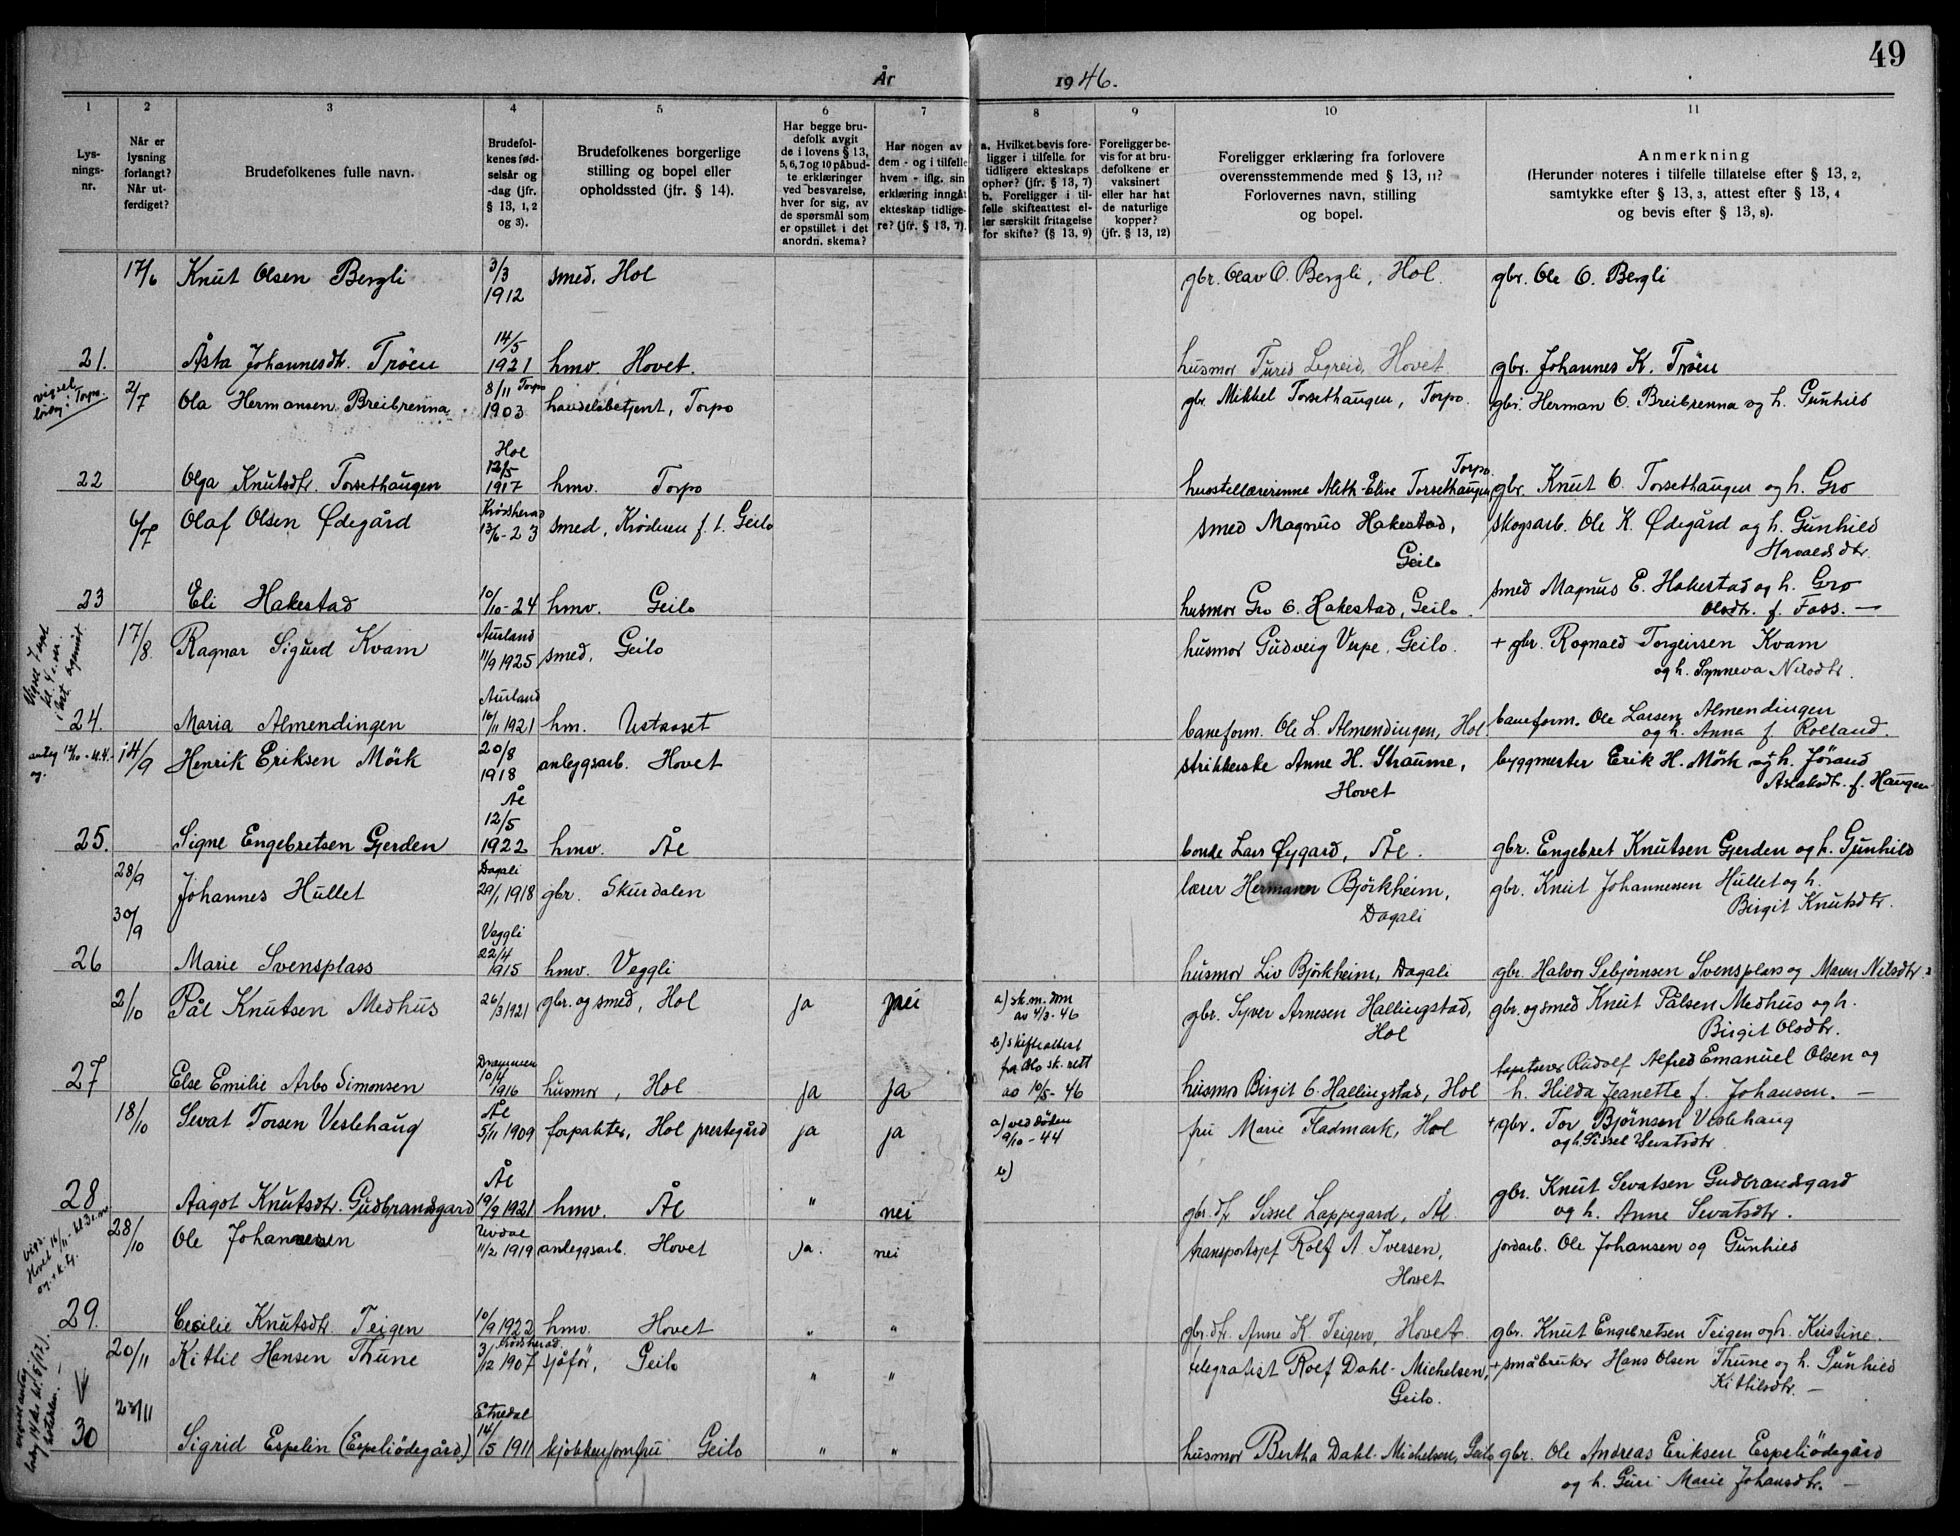 49
År 1946.
1 2 3 4 5 6 7 8 9 10 11
Lys-
nings-
nr.
Når er
lysning
forlangt?
Når ut-
ferdiget?
Brudefolkenes fulle navn.
Brudefol-
kenes fød-
selsår og
-dag (jfr.
§ 13, 1, 2
og 3).
Brudefolkenes borgerlige
stilling og bopel eller
opholdssted (jfr. § 14).
Har begge bru-
defolk avgit
de i lovens § 13,
5, 6, 7 og 10 påbud-
te erklæringer
ved besvarelse,
hver for sig, av
de spørsmål som
er opstillet i det
anordn. skema?
Har nogen av
dem - og i tilfelle
hvem - iflg. sin
erklæring inngåt
ekteskap tidlige-
re? (jfr. § 13, 7).
a. Hvilket bevis fore-
ligger i tilfelle for
tidligere ekteskaps
ophør? (jfr. § 13, 7)
b. Foreligger i til-
felle skifteattest el-
ler særskilt fritagelse
for skifte? (§ 13, 9)
Foreligger be-
vis for at bru-
defolkene er
vaksinert
eller har hat
de naturlige
kopper?
(jfr. § 13, 12)
Foreligger erklæring fra forlovere
overensstemmende med § 13, 11?
Forlovernes navn, stilling
og bopel.
Anmerkning
(Herunder noteres i tilfelle tillatelse efter § 13, 2,
samtykke efter § 13, 3, attest efter § 13, 4
og bevis efter § 13, 8).
17/6 Knut Olsen Bergli 3/3 1912 smed, Hol gbr. Olav O. Bergli, Hol. gbr. Ole O. Bergli
21. Åsta Johannesdtr. Trøen 14/5 1921 hmv Hovet. husmor Turid Legreid, Hovet gbr. Johannes K. Trøen
vigsel Torpo.
2/7 Ola Hermansen Breibrenna 8/11 Torpo 1903 handelsbetjent, Torpo gbr Mikkel Torsethaugen, Torpo. gbr. Herman O. Breibrenna og h. Gunhild
22 Olga Knutsdtr. Torsethaugen Hol 12/5 1917 hmv. Torpo husstellærerinne Alith Elise Torsethaugen Torpo. gbr. Knut O. Torsethaugen og h. Gro
6/7 Olaf Olsen Ødegård Krødsherad 13/6-23 smed, Krøderen f. t. Geilo smed Magnus Hakestad, skogsarb. Ole K. Ødegård og h. Gunhild
Geilo Havaldsdtr.
23 Eli Hakestad 10/10-24 hmv. Geilo husmor Gro O. Hakestad, Geilo. smed Magnus E. Hakestad og h. Gro
Olsdtr. f. Foss. —
17/8. Ragnar Sigurd Kvam Aurland 11/9 1925 smed, Geilo husmor Gudveig Verpe, Geilo. + gbr. Rognald Torgeirsen Kvam
og h. Synneva Nilsdtr.
Vigsel 7 sept
kl. 4 e.m.
24. Maria Almendingen Aurland 16/11 1921 hm. Ustaoset baneform. Ole L. Almendingen, Hol. baneform. Ole Larsen Almendingen
og h. Anna f Rolland.
14/9 Henrik Eriksen Mörk 20/8 1918 anleggsarb. Hovet strikkerske Anne H. Straume, byggmester Erik H. Mörk og h. Jørand
Hovet Aslaksdtr. f. Haugen
25. Signe Engebretsen Gjerden Ål 12/5 1922 hmv. Ål bonde Lars Øygard, Ål. gbr. Engebret Knutsen Gjerden og h. Gunhild
28/9 Johannes Hullet Dagali 29/1 1918 gbr. Skurdalen lærer Hermann Björkheim, gbr. Knut Johannessen Hullet og h.
30/9 Dagali Birgit Knutsdtr.
26 Marie Svensplass Veggli 22/4 1915 hmv. Veggli husmor Liv Björkheim, Dagali gbr. Halvor Sebjørnsen Svensplass og Maren Nilsdtr.
2/10 Pål Knutsen Medhus 26/3 1921 gbr. og smed, Hol ja nei a) sk.m. dom gbr. Syver Arnesen Hallingstad, gbr. og smed Knut Pålsen Medhus og h.
av 4/3-46 Hol Birgit Olsdtr.
b) skifteattest
fra Oslo sk. rett
av 10/5-46
27 Else Emilie Arbo Simonsen Drammen 10/4 1916 husmor, Hol ja ja husmor Birgit O. Hallingstad, Hol tapetserer Rudolf Alfred Emanuel Olsen og
h. Hilda Jeanette f. Johansen. —
18/10 Sevat Torsen Veslehaug Ål 5/11 1909 forpakter, Hol prestegård ja ja a) ved døden fru Marie Fladmark, Hol + gbr. Tor Bjørnsen Veslehaug
9/10-44 og h. Sissel Sevatsdtr
b)
28 Aagot Knutsdtr. Gudbrandsgard Ål 9/9 1921 hmv. Ål " nei gbr.dtr Sissel Lappegard, Ål. gbr. Knut Sevatsen Gudbrandsgard
og h. Anne Sevatsdtr.
28/10 Ole Johannesen Uvdal 11/2 1919 anleggsarb. Hovet ja. nei transportsjef Rolf A. Iversen, jordarb. Ole Johansen og Gunhild
Hovet
29. Cecilie Knutsdtr. Teigen 10/9 1922 hmv. Hovet " " gbr.dtr. Anne K. Teigen, Hovet gbr. Knut Engebretsen Teigen og h. Kristine.
20/11 Kittil Hansen Thune Krødsherad 3/12 1907 sjåfør, Geilo " " telegrafist Rolf Dahl-Michelsen, + småbruker Hans Olsen Thune og h. Gunhild
Geilo. Kittilsdtr. —
23/11
30 Sigrid Espelin (Espeliødegård) Etnedal 14/5 1911 kjøkkenjomfru Geilo " " husmor Bertha Dahl-Michelsen, Geilo gbr. Ole Andreas Eriksen Espeliødegård
og h. Guri Marie Johansdtr. —